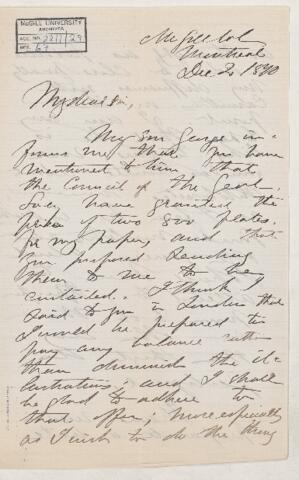 McGILL UNIVERSITY
ARCHIVES
ACC. NO. 2211/29
REF. 67
McGill Col
Montreal
Dec 2, 1870
My dear Sir,
My son George in-
forms me that you have
mentioned to him that
the Council of the Geol.
Soc. have granted the
price of two 8vo plates.
for my paper, and that
you proposed sending
them to me to be
curtailed. I think I
said to you in London that
I would be prepared to
pay any balance rather
than diminish the il-
lustrations, and I shall
be glad to adhere to
that offer; more especially
as I wish to do the thing